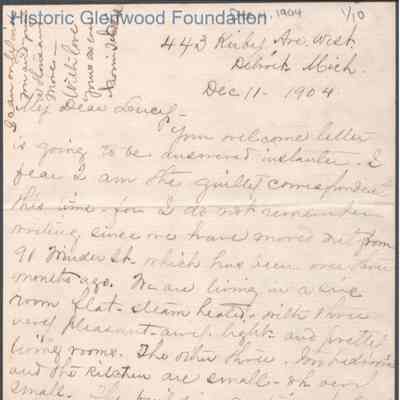 Historic Glenwood Foundation
Dec 11, 1904
1/10
443 Kirby Ave. West
Detroit Mich
Dec 11 - 1904
My Dear Lucy-
Your welcome letter
is going to be answered instanter. I
fear I am the guilty correspondent
this time - for I do not remember
writing since we have moved out from
91 Winder St. which has been over
months ago. We are living in a
room flat - steam heated - with three
very pleasant and light and pretty
living rooms. The other three
and the kitchen are small - very
small. The
With love
Yours as ever